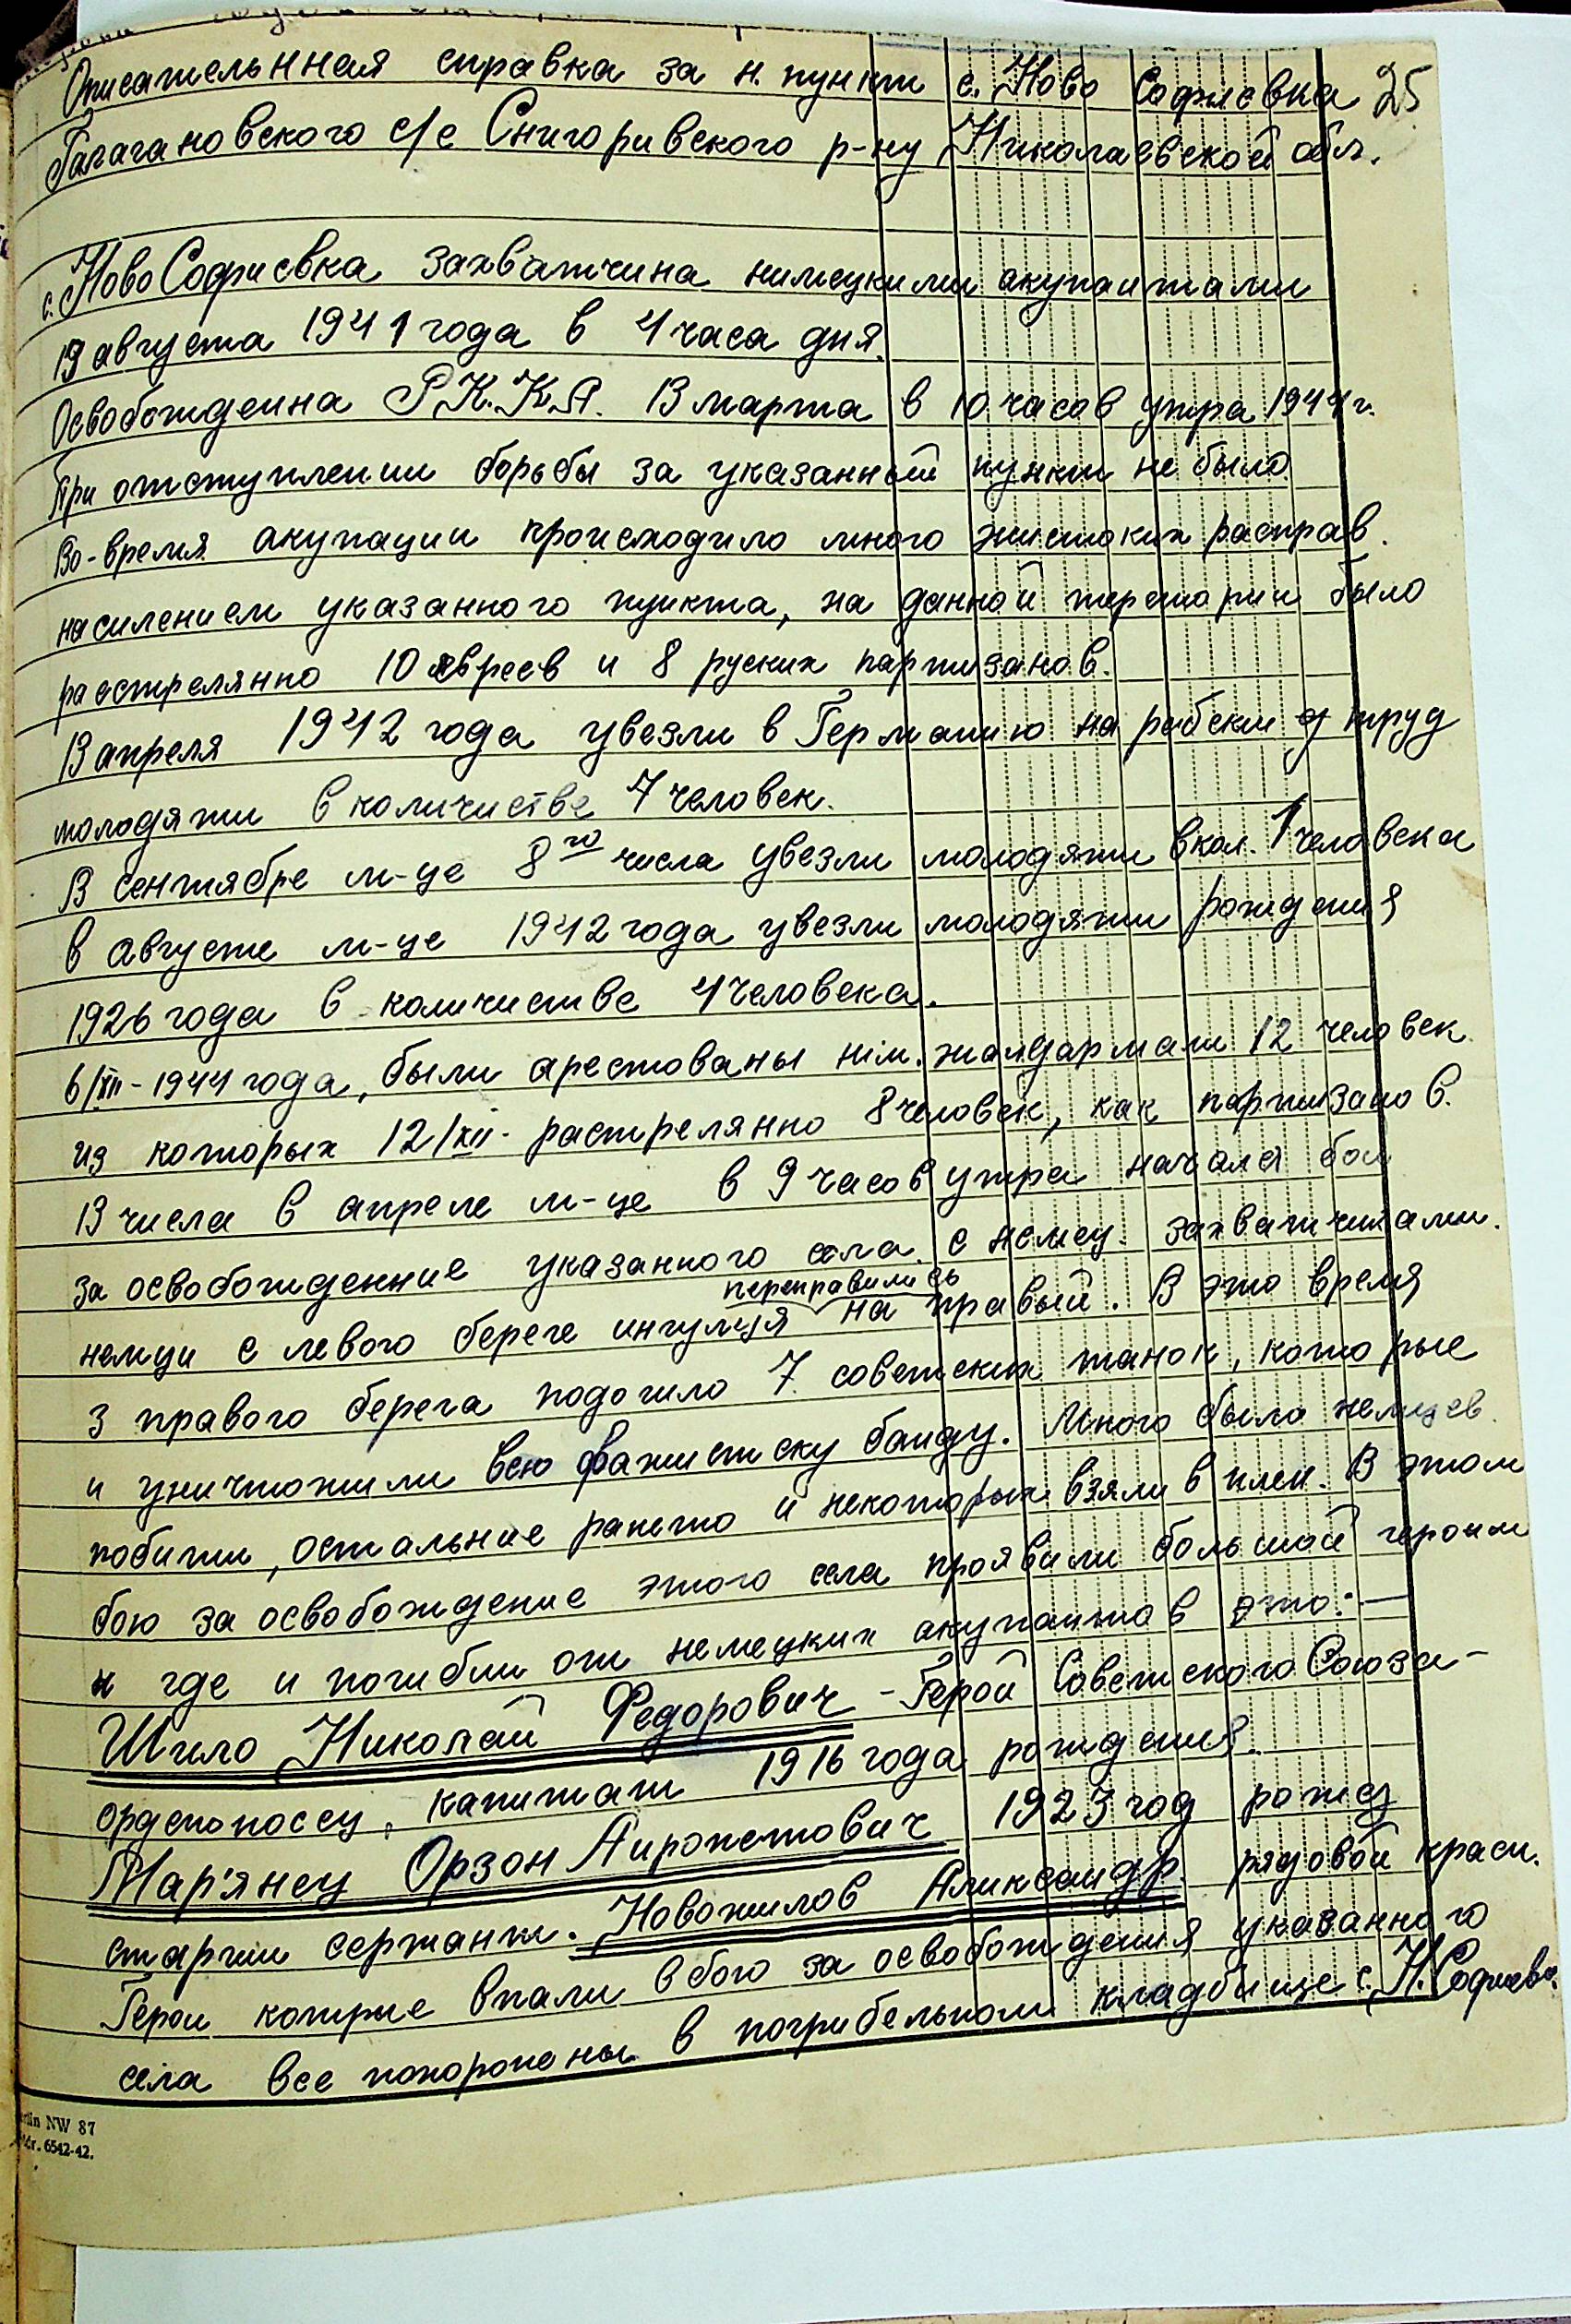 Описательнная справка за н. пункт с. Ново Софиевка 25
Галагановского с/с Снигоривского р-ну Николаевской обл.
с. Ново Софиевка захватчина нимецкими акупантами
19 августа 1941 года в 4 часа дня.
Освобожденна Р.К.К.А. 13 марта в 10 часов утра 1944 г.
При отступлении борьбы за указанный пункт не было
Во-время акупации происходило много жистоких расправ.
насилением указанного пункта, на данной теретории было
расстрелянно 10 явреев и 8 руских партизанов.
13 апреля 1942 года увезли в Германию на рабский труд
молодяжи в количистве 7 человек.
В сентябре м-це 8го числа увезли молодяжи в кол. 1 человека
в августе м-це 1942 года увезли молодяжи рождения
1926 года в количистве 4 человека.
6/XII-1944 года, были арестованы нім. жандармами 12 человек
из которых 12/XII- растрелянно 8 человек, как партизанов.
13 числа в апреле м-це в 9 часов утра начался бой
за освобожденние указанного села с немец. захватчиками.
переправились
немци с левого береге ингульця на правый. В это время
з правого берега подочило 7 советских танок, которые
и уничтожили всю фашистску банду. Много было немцев
побитии, остальние рането и некоторых взяли в плен. В этом
бою за освобождение этого села проявили большой героизм
и где и погибли от немецких акупантов это: —
Шило Николай Федорович - Герой Советского Союза -
орденоносец, капитан 1916 года рождения.
Мар'янец Орзон Айрапетович 1923 год рожд
старши сержант. Новожилов Аликсандр. рядовой красн.
Герои которые впали в бою за освобождения указанного
села все похоронены в погрибельном кладбище с. Н. Софиевка
rlin NW 87
dr. 6542-42.